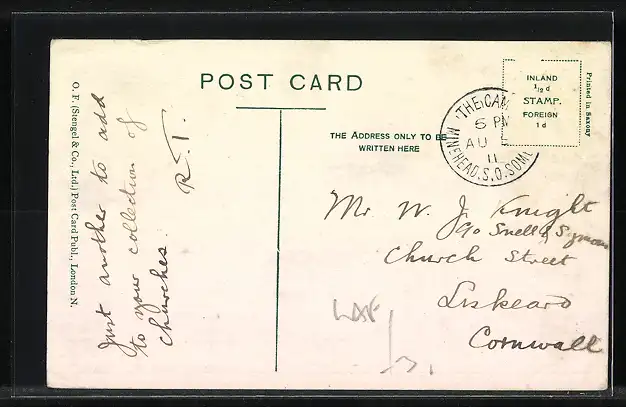 POST CARD
THE ADDRESS ONLY TO BE
WRITTEN HERE
INLAND
½ d
STAMP.
FOREIGN
1 d
Printed in Saxony
THE CAM
6 PM
AU
11
MINEHEAD.S.O.SOM
O. F. (Stengel & Co., Ltd.) Post Card Publ., London N.
Just another to add
to your collection of
churches.
R. T.
Mr. W. J. Knight
c/o Snell &
Church Street
Liskeard
Cornwall